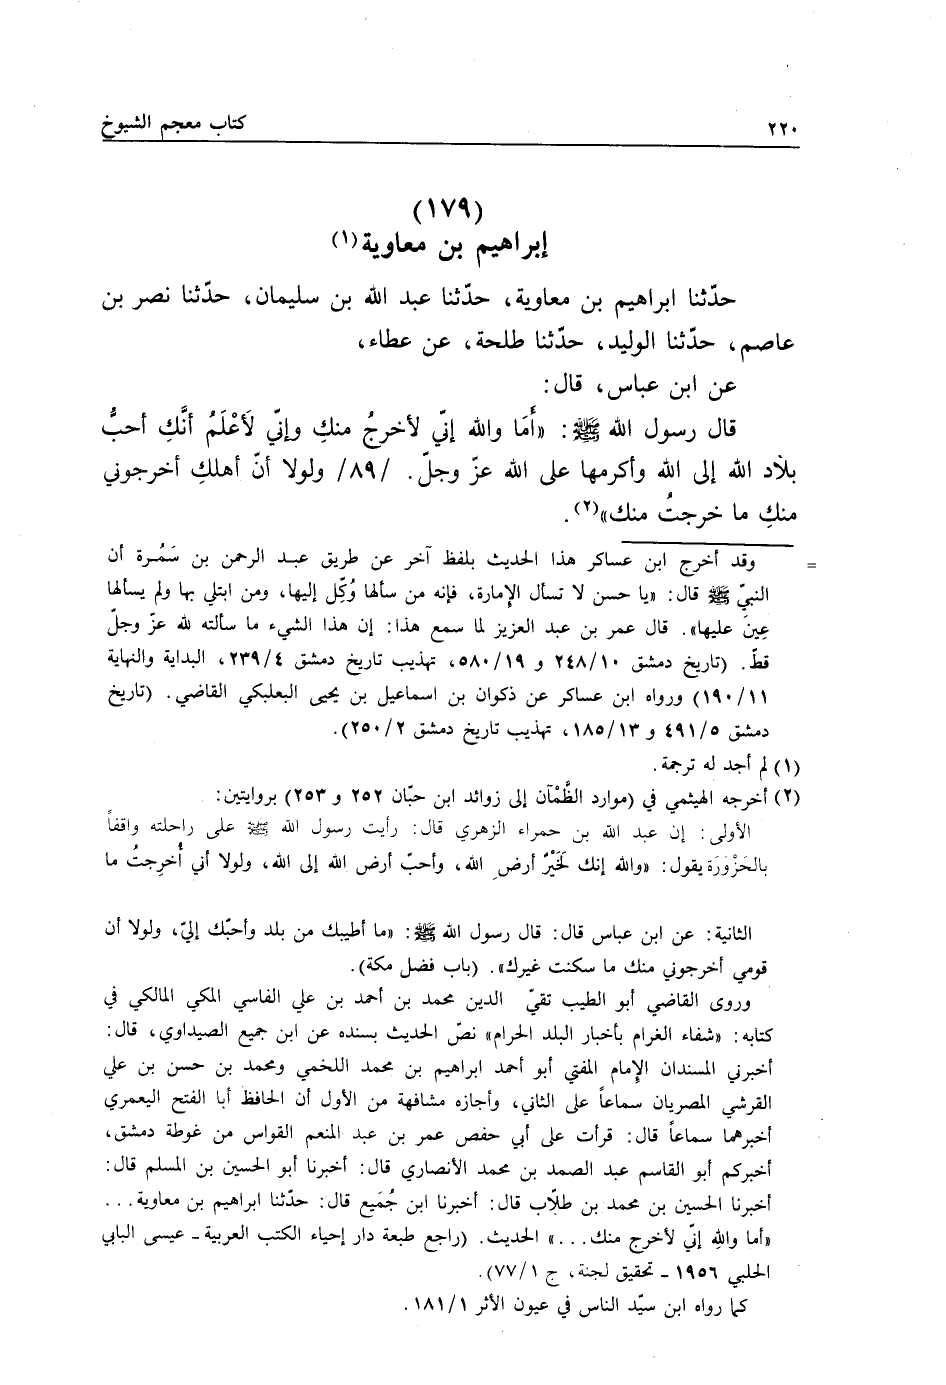 ٢٢٠ كتاب معجم الشيوخ
(١٧٩)
إبراهيم بن معاوية(١)
حدّثنا ابراهيم بن معاوية، حدّثنا عبد الله بن سليمان، حدّثنا نصر بن
عاصم، حدّثنا الوليد، حدّثنا طلحة، عن عطاء،
عن ابن عباس، قال:
قال رسول الله ﷺ: «أَمَا والله إنّي لأخرجُ منكِ وإنّي لَأَعْلَمُ أنَّكِ أحبُّ
بلاد الله إلى الله وأكرمها على الله عزّ وجلّ. /٨٩/ ولولا أنّ أهلكِ أخرجوني
منكِ ما خرجتُ منك»(٢).
= وقد أخرج ابن عساكر هذا الحديث بلفظ آخر عن طريق عبد الرحمن بن سَمُرة أن
النبيّ ﷺ قال: «يا حسن لا تسأل الإمارة، فإنه من سألها وُكِّل إليها، ومن ابتلي بها ولم يسألها
عِينَ عليها». قال عمر بن عبد العزيز لما سمع هذا: إن هذا الشيء ما سألته لله عزّ وجلّ
قطّ. (تاريخ دمشق ٢٤٨/١٠ و ٥٨٠/١٩، تهذيب تاريخ دمشق ٢٣٩/٤، البداية والنهاية
١٩٠/١١) ورواه ابن عساكر عن ذكوان بن اسماعيل بن يحيى البعلبكي القاضي. (تاريخ
دمشق ٤٩١/٥ و ١٨٥/١٣، تهذيب تاريخ دمشق ٢٥٠/٢).
(١) لم أجد له ترجمة.
(٢) أخرجه الهيثمي في (موارد الظَّمْآن إلى زوائد ابن حبّان ٢٥٢ و ٢٥٣) بروايتين:
الأولى: إن عبد الله بن حمراء الزهري قال: رأيت رسول الله ﷺ على راحلته واقفاً
بالحَزْوَرَة يقول: «والله إنك لَخَيْرُ أرض الله، وأحبّ أرض الله إلى الله، ولولا أني أُخرِجتُ ما
الثانية: عن ابن عباس قال: قال رسول الله ﷺ: «ما أطيبك من بلد وأحبّك إليّ، ولولا أن
قومي أخرجوني منك ما سكنت غيرك». (باب فضل مكة).
وروى القاضي أبو الطيب تقيّ الدين محمد بن أحمد بن علي الفاسي المكي المالكي في
كتابه: «شفاء الغرام بأخبار البلد الحرام» نصّ الحديث بسنده عن ابن جميع الصيداوي، قال:
أخبرني المسندان الإمام المفتي أبو أحمد ابراهيم بن محمد اللخمي ومحمد بن حسن بن علي
القرشي المصريان سماعاً على الثاني، وأجازه مشافهة من الأول أن الحافظ أبا الفتح اليعمري
أخبرهما سماعاً قال: قرأت على أبي حفص عمر بن عبد المنعم القواس من غوطة دمشق،
أخبركم أبو القاسم عبد الصمد بن محمد الأنصاري قال: أخبرنا أبو الحسين بن المسلم قال:
أخبرنا الحسين بن محمد بن طلّاب قال: أخبرنا ابن جُمَيع قال: حدّثنا ابراهيم بن معاوية...
«أما واللهِ إنّي لأخرج منك...» الحديث. (راجع طبعة دار إحياء الكتب العربية - عيسى البابي
الحلبي ١٩٥٦ - تحقيق لجنة، ج ٧٧/١).
كما رواه ابن سيّد الناس في عيون الأثر ١٨١/١.